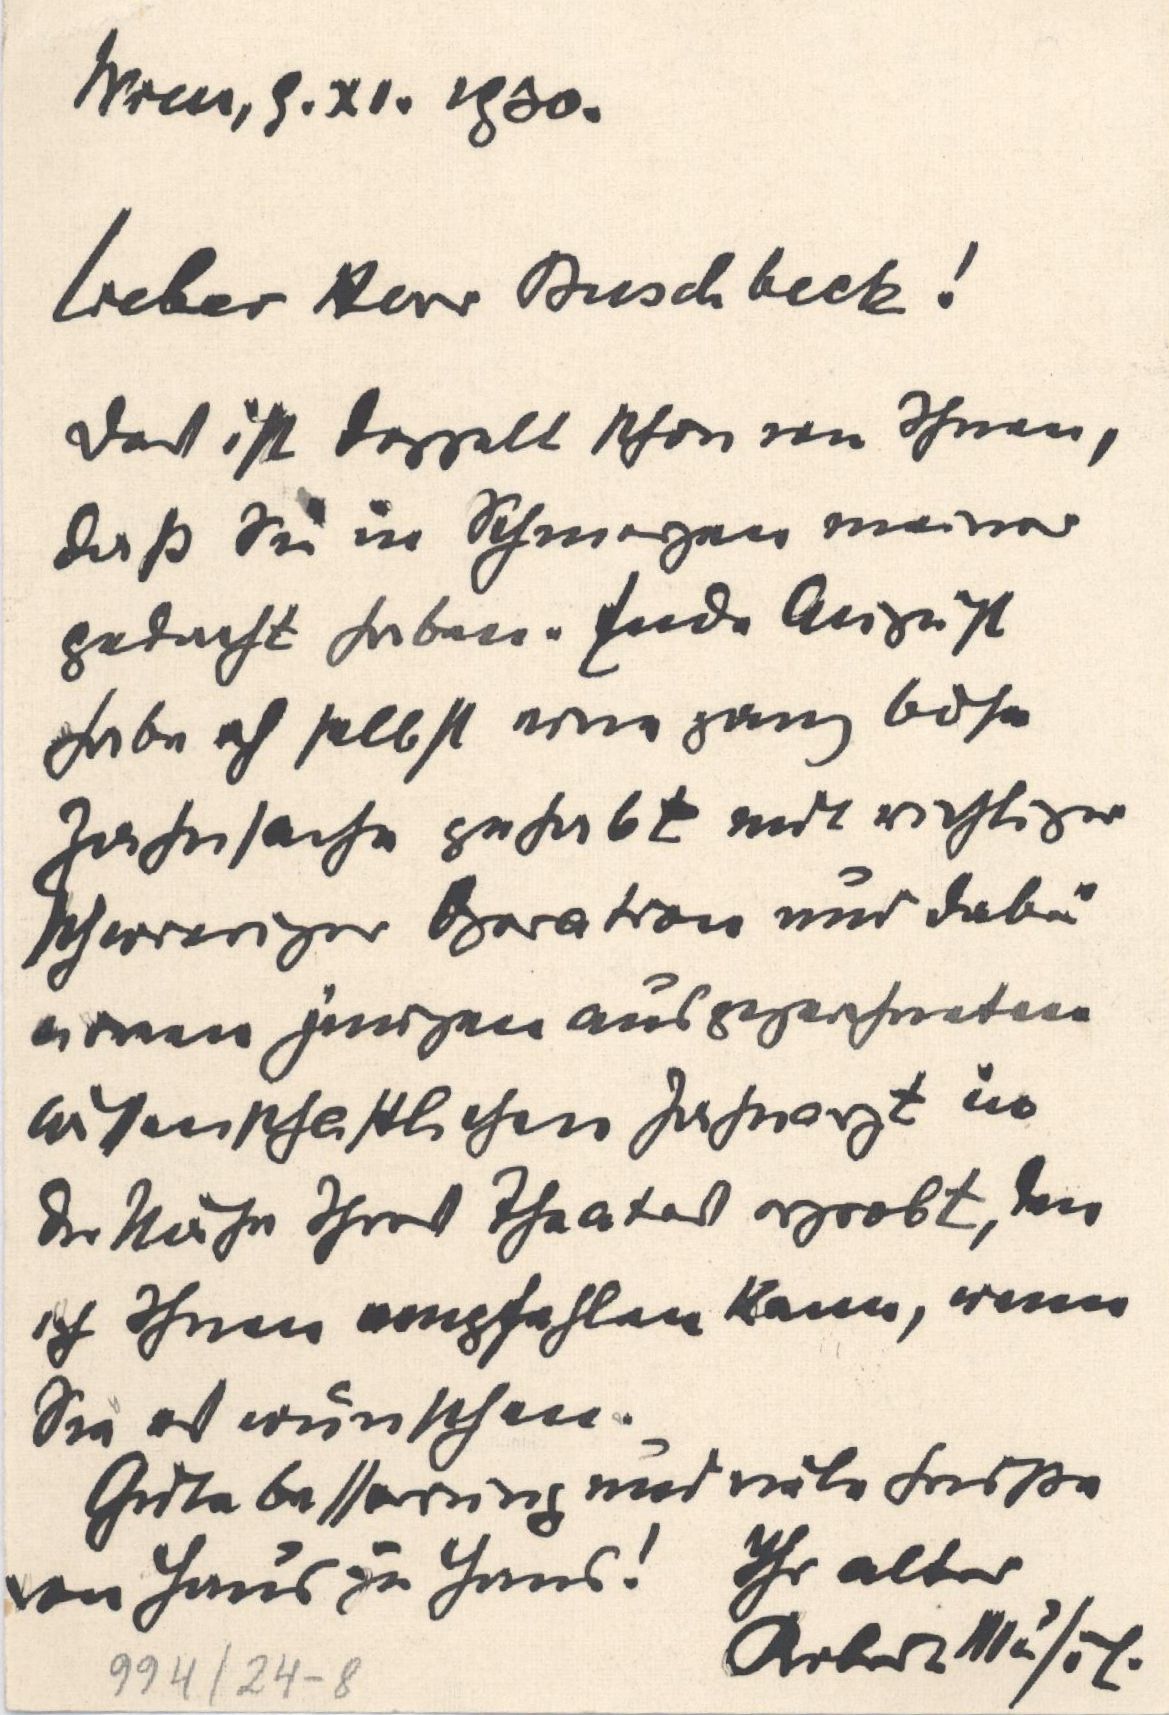 Wien, 9. XI. 1930.
Lieber Herr Buschbeck!
Das ist doppelt schön von Ihnen,
daß Sie in Schmerzen meiner
gedacht haben. Ende August
habe ich selbst eine ganz böse
Zahnsache gehabt mit richtiger
schwieriger Operation und dabei
einen jungen ausgezeichneten
wissenschaftlichen Zahnarzt in
der Nähe Ihres Theaters erprobt, den
ich Ihnen empfehlen kann, wenn
Sie es wünschen.
Gute Besserung und viele Grüße
von Haus zu Haus! Ihr alter
Robert Musil.
994/24-8